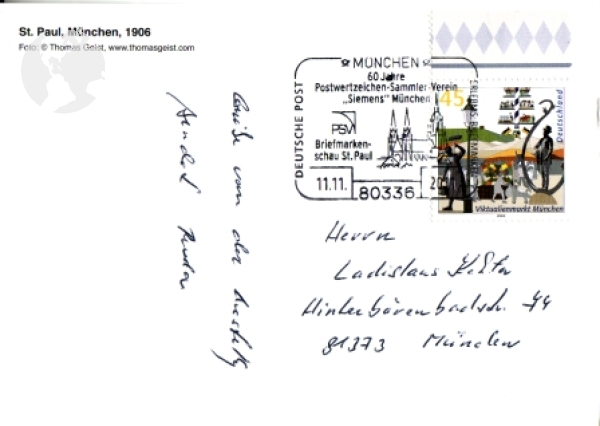 St. Paul, München, 1906
Foto: © Thomas Geist, www.thomasgeist.com
MÜNCHEN
60 Jahre
Postwertzeichen-Sammler-Verein
„Siemens" München
PSV
Briefmarken-
schau St. Paul
DEUTSCHE POST
11.11.
20
80336
ERLEBNIS BRIEFMARKEN
45
Deutschland
Viktualienmarkt München
Grüße von der
Herrn
Ladislaus
Hinterbärenbadstr. 44
81373 München